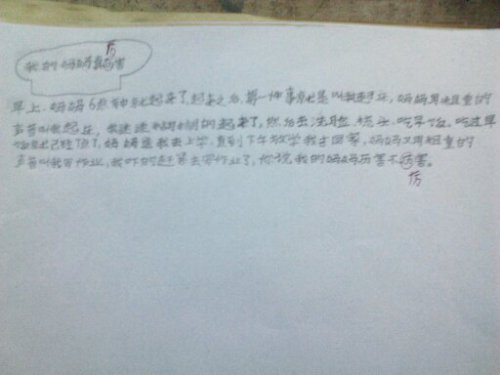 厉
我的妈妈真历害
早上,妈妈6点钟就起来了,起来之后,第一件事就是叫我起床,妈妈用粗重的
声音叫我起床,我迷迷糊糊的起来了,然后去洗脸,梳头,吃早饭,吃过早
饭就已经7点了,妈妈送我去上学,直到下午放学我才回家,妈妈又用粗重的
声音叫我写作业,我吓的赶紧去写作业了,你说我的妈妈历害不历害。
厉